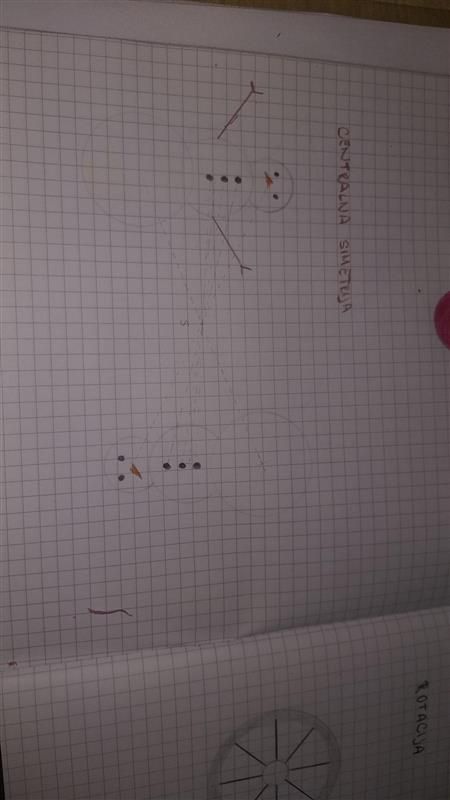 CENTRALNA SIMETRIJA
S
ROTACIJA